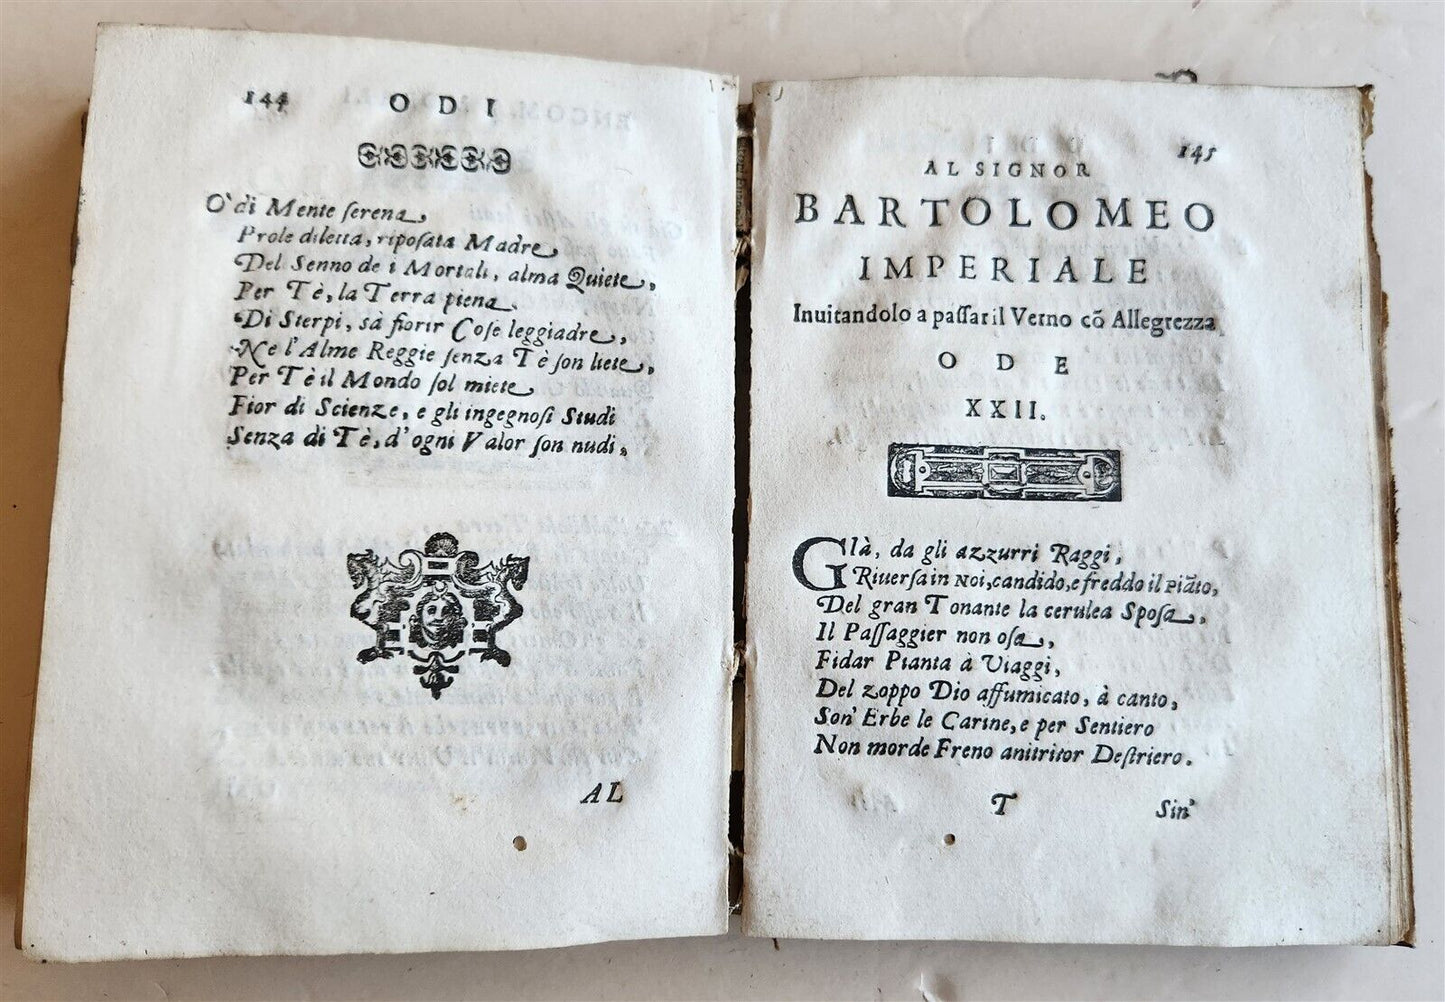 144 ODI
O' di Mente ſerena,
Prole diletta, ripoſata Madre
Del Senno de i Mortali, alma Quiete,
Per Tè, la Terra piena
Di Sterpi, sà fiorir Coſe leggiadre,
Ne l'Alme Reggie ſenza Tè ſon liete,
Per Tè il Mondo ſol miete
Fior di Scienze, e gli ingegnoſi Studi
Senza di Tè, d'ogni Valor ſon nudi,
AL
145
AL SIGNOR
BARTOLOMEO
IMPERIALE
Inuitandolo a paſſar il Verno cõ Allegrezza
ODE
XXII.
Già, da gli azzurri Raggi,
Riuerſa in Noi, candido, e freddo il piãto,
Del gran Tonante la cerulea Spoſa,
Il Paſſaggier non oſa,
Fidar Pianta à Viaggi,
Del zoppo Dio affumicato, à canto,
Son' Erbe le Carine, e per Sentiero
Non morde Freno anitritor Deſtriero.
T Sin'